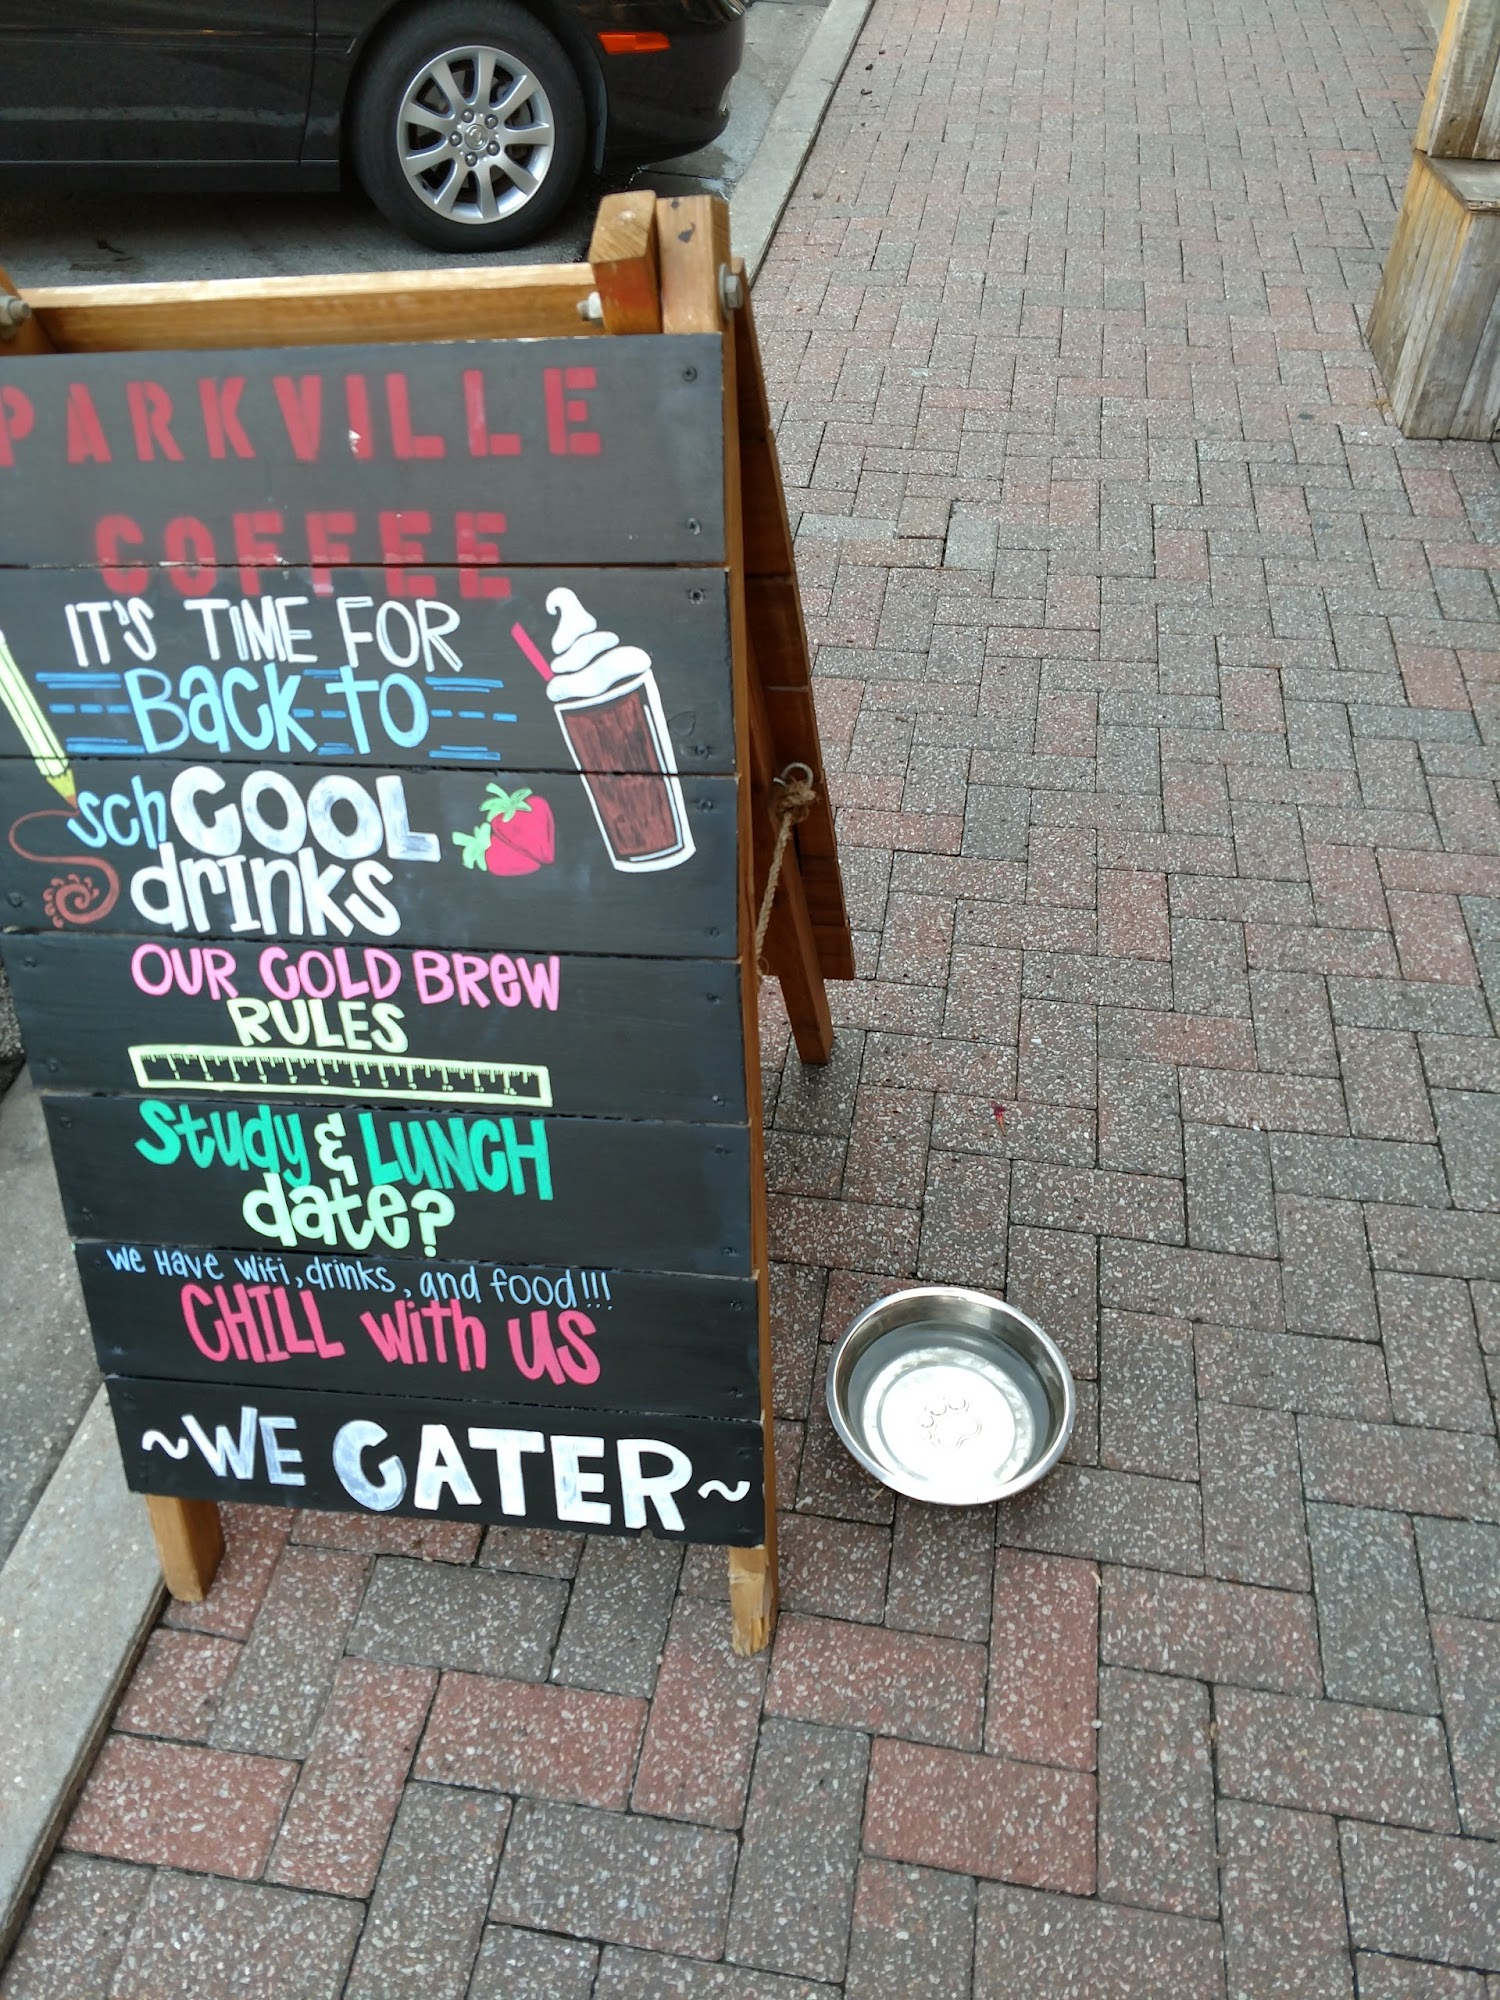 PARKVILLE
COFFEE
IT'S TIME FOR
BACK TO
schCOOL
drinks
OUR COLD BREW
RULES
Study & LUNCH
date?
we Have wifi, drinks, and food!!!
CHILL with us
~WE CATER~